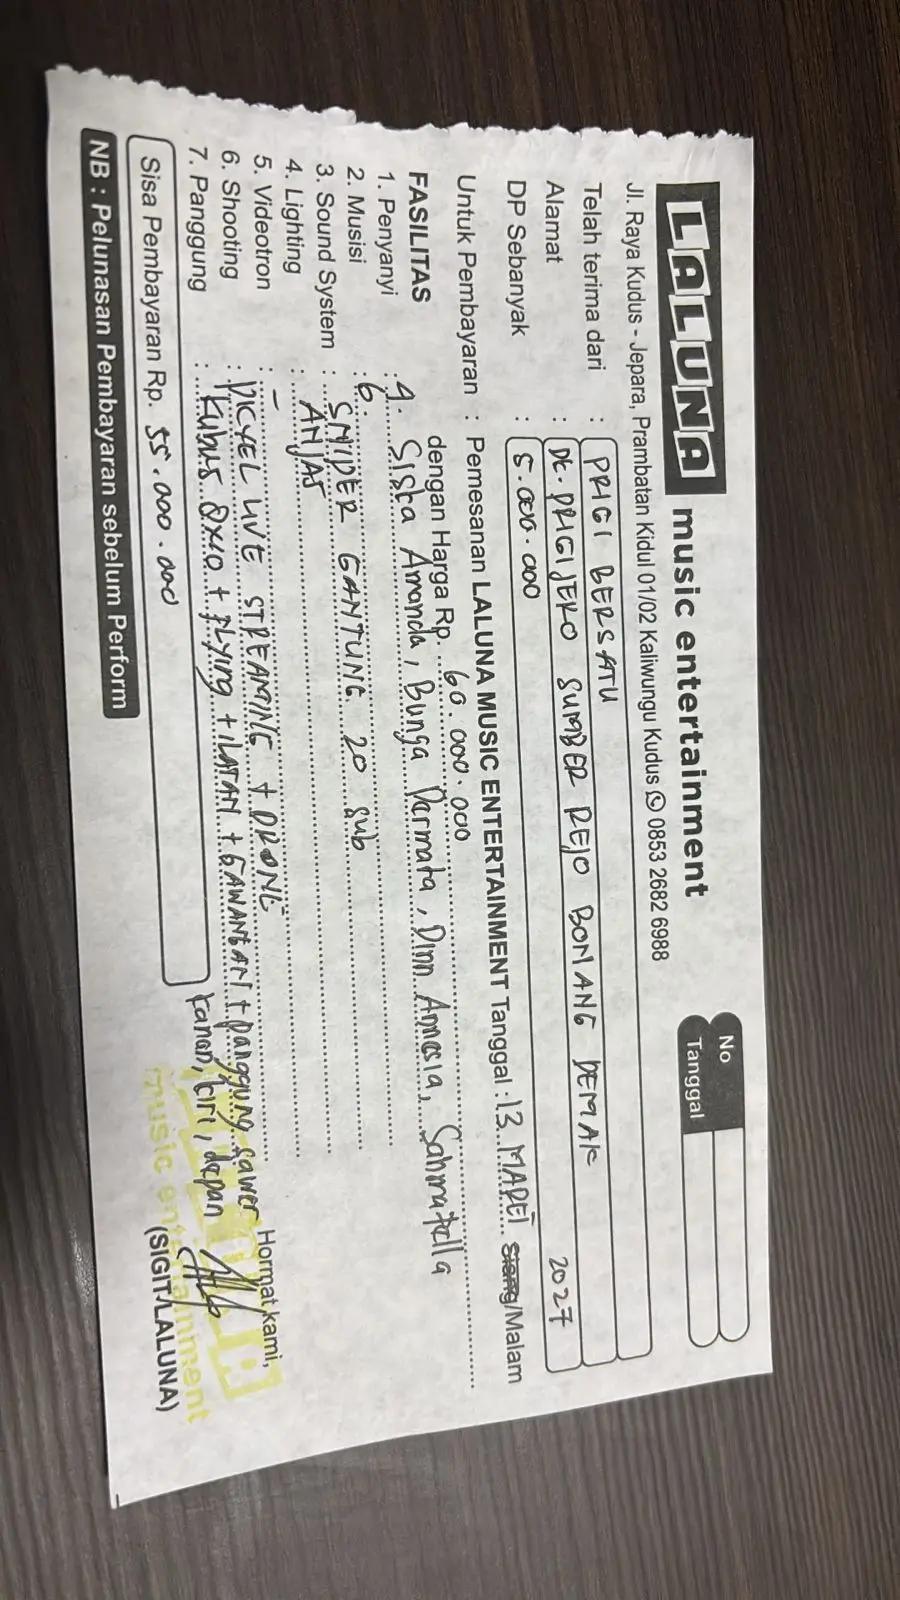 LALUNA music entertainment
Jl. Raya Kudus - Jepara, Prambatan Kidul 01/02 Kaliwungu Kudus 0853 2682 6988
No
Tanggal
Telah terima dari : PRIGI BERSATU
Alamat : DK. PRIGI JERO SUMBER REJO BONANG DEMAK
DP Sebanyak : 5.000.000
2027
Untuk Pembayaran : Pemesanan LALUNA MUSIC ENTERTAINMENT Tanggal : 13 MARET Siang/Malam
dengan Harga Rp. 60.000.000
FASILITAS
1. Penyanyi : 4. Sista Amanda, Bunga Permata, Dinn Annesia, Sahmatella
2. Musisi : 6.
3. Sound System : SNIPER GANTUNG 20 sub
4. Lighting : ANJAS
5. Videotron : -
6. Shooting : PICYEL LIVE STREAMING + DRONE
7. Panggung : Kubus 8x10 + Flying + ILATAN + GAWANGAN + panggung sawer
kanan, kiri, depan
Sisa Pembayaran Rp. 55.000.000
NB : Pelunasan Pembayaran sebelum Perform
Hormat kami,
music entertainment
(SIGIT/LALUNA)